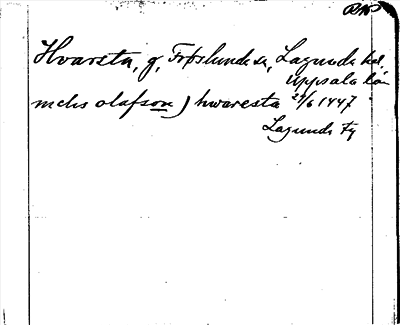 Hvarsta, g, Fröslunda sn, Lagunda hd,
Uppsala län
mchs olafson ) hwaresta 29/6 1447
Lagunda Fg